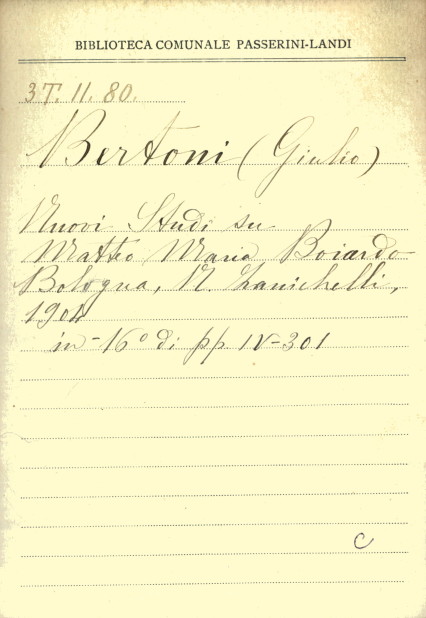 BIBLIOTECA COMUNALE PASSERINI-LANDI
3T. II. 80.
Bertoni (Giulio)
Nuovi Studi su
Matteo Maria Boiardo
Bologna, N. Zanichelli,
1904
in-16º di pp IV-301
C